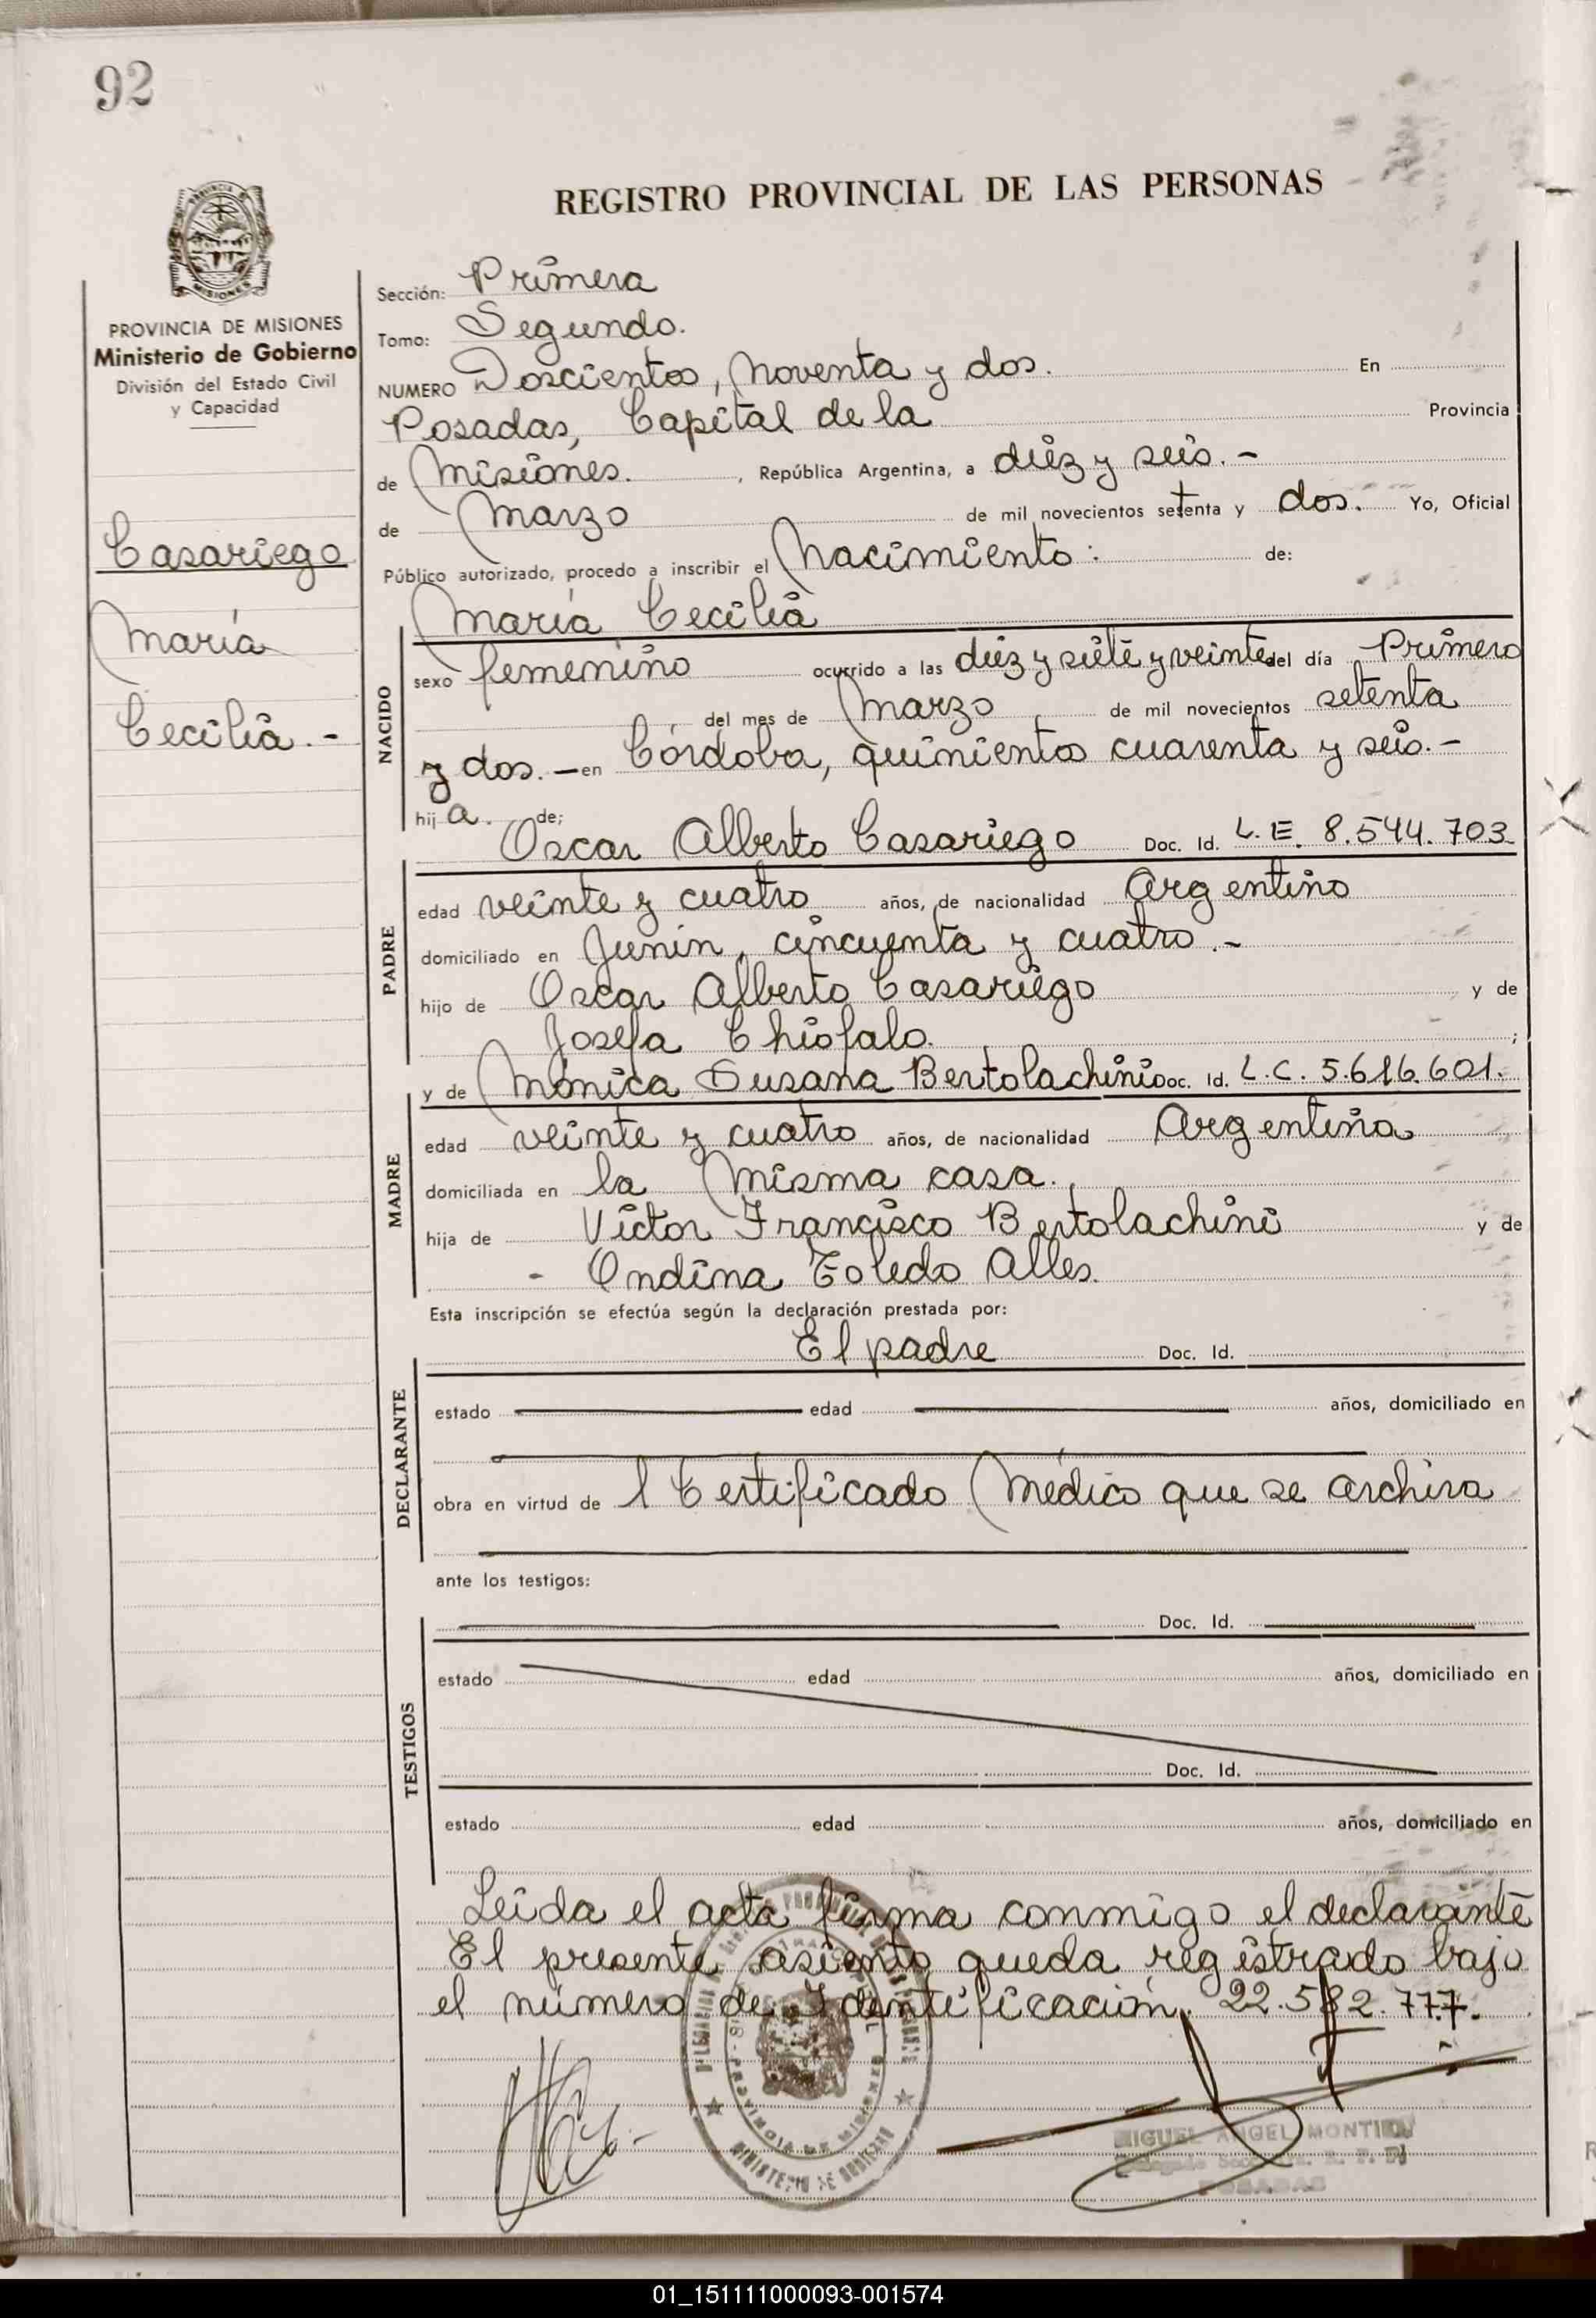 92
REGISTRO PROVINCIAL DE LAS PERSONAS
PROVINCIA DE MISIONES
Ministerio de Gobierno
División del Estado Civil
y Capacidad
Casariego
María
Cecilia.-
Sección: Primera
Tomo: Segundo.
NUMERO Doscientos, Noventa y dos. En
Posadas, Capital de la Provincia
de Misiones. , República Argentina, a diez y seis.-
de Marzo de mil novecientos setenta y dos. Yo, Oficial
Público autorizado, procedo a inscribir el Nacimiento: de:
María Cecilia
NACIDO
sexo femenino ocurrido a las diez y siete y veinte del día Primero
del mes de Marzo de mil novecientos setenta
y dos.- en Córdoba, quinientos cuarenta y seis.-
hij a. de;
Oscar Alberto Casariego Doc. Id. L.E. 8.544.703
PADRE
edad veinte y cuatro años, de nacionalidad Argentino
domiciliado en Junín, cincuenta y cuatro.-
hijo de Oscar Alberto Casariego y de
Josefa Chiofalo. ;
y de Mónica Susana Bertolachini Doc. Id. L.C. 5.616.601.
MADRE
edad veinte y cuatro años, de nacionalidad Argentina
domiciliada en la Misma casa.
hija de Víctor Francisco Bertolachini y de
- Ondina Toledo Alles.
Esta inscripción se efectúa según la declaración prestada por:
El padre Doc. Id.
DECLARANTE
estado edad años, domiciliado en
obra en virtud de l Certificado Médico que se archiva
ante los testigos:
Doc. Id.
TESTIGOS
estado edad años, domiciliado en
Doc. Id.
estado edad años, domiciliado en
Leída el acta firma conmigo el declarante
El presente asiento queda registrado bajo
el número de Identificación. 22.582.777.
PROVINCIA DE MISIONES
MIGUEL ANGEL MONTIEL
POSADAS
01_151111000093-001574